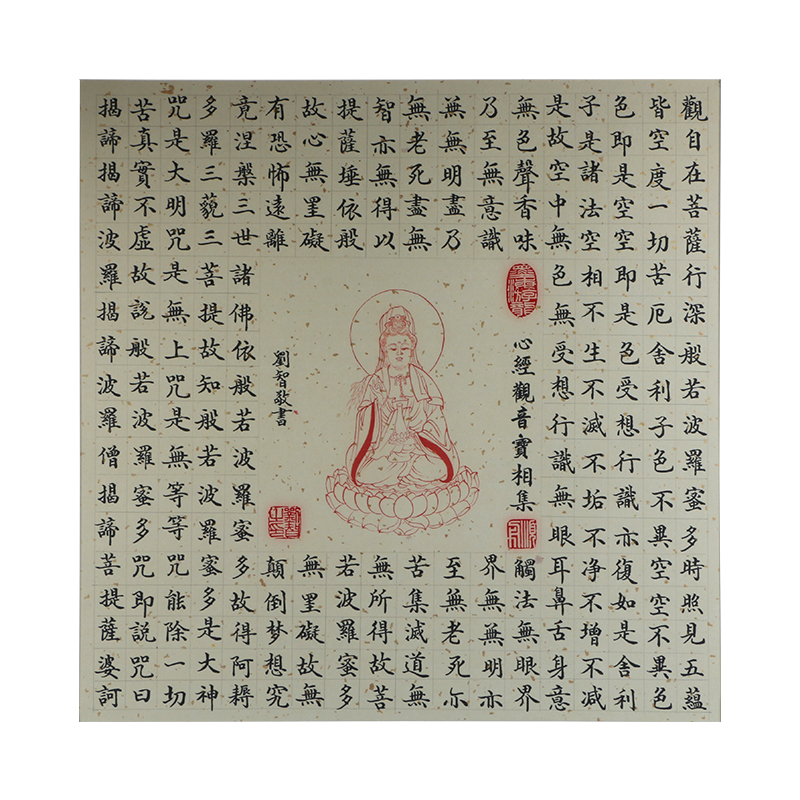 觀自在菩薩行深般若波羅蜜多時照見五蘊
皆空度一切苦厄舍利子色不異空空不異色
色即是空空即是色受想行識亦復如是舍利
子是諸法空相不生不滅不垢不净不增不减
是故空中無色無受想行識無眼耳鼻舌身意
無色聲香味
觸法無眼界
乃至無意識
界無無明亦
無無明盡乃
至無老死亦
無老死盡無
苦集滅道無
智亦無得以
無所得故菩
提薩埵依般
若波羅蜜多
故心無罣礙
無罣礙故無
有恐怖遠離
顛倒梦想究
竟涅槃三世諸佛依般若波羅蜜多故得阿耨
多羅三藐三菩提故知般若波羅蜜多是大神
咒是大明咒是無上咒是無等等咒能除一切
苦真實不虛故說般若波羅蜜多咒即說咒曰
揭諦揭諦波羅揭諦波羅僧揭諦菩提薩婆訶
心經觀音寶相集
劉智敬書